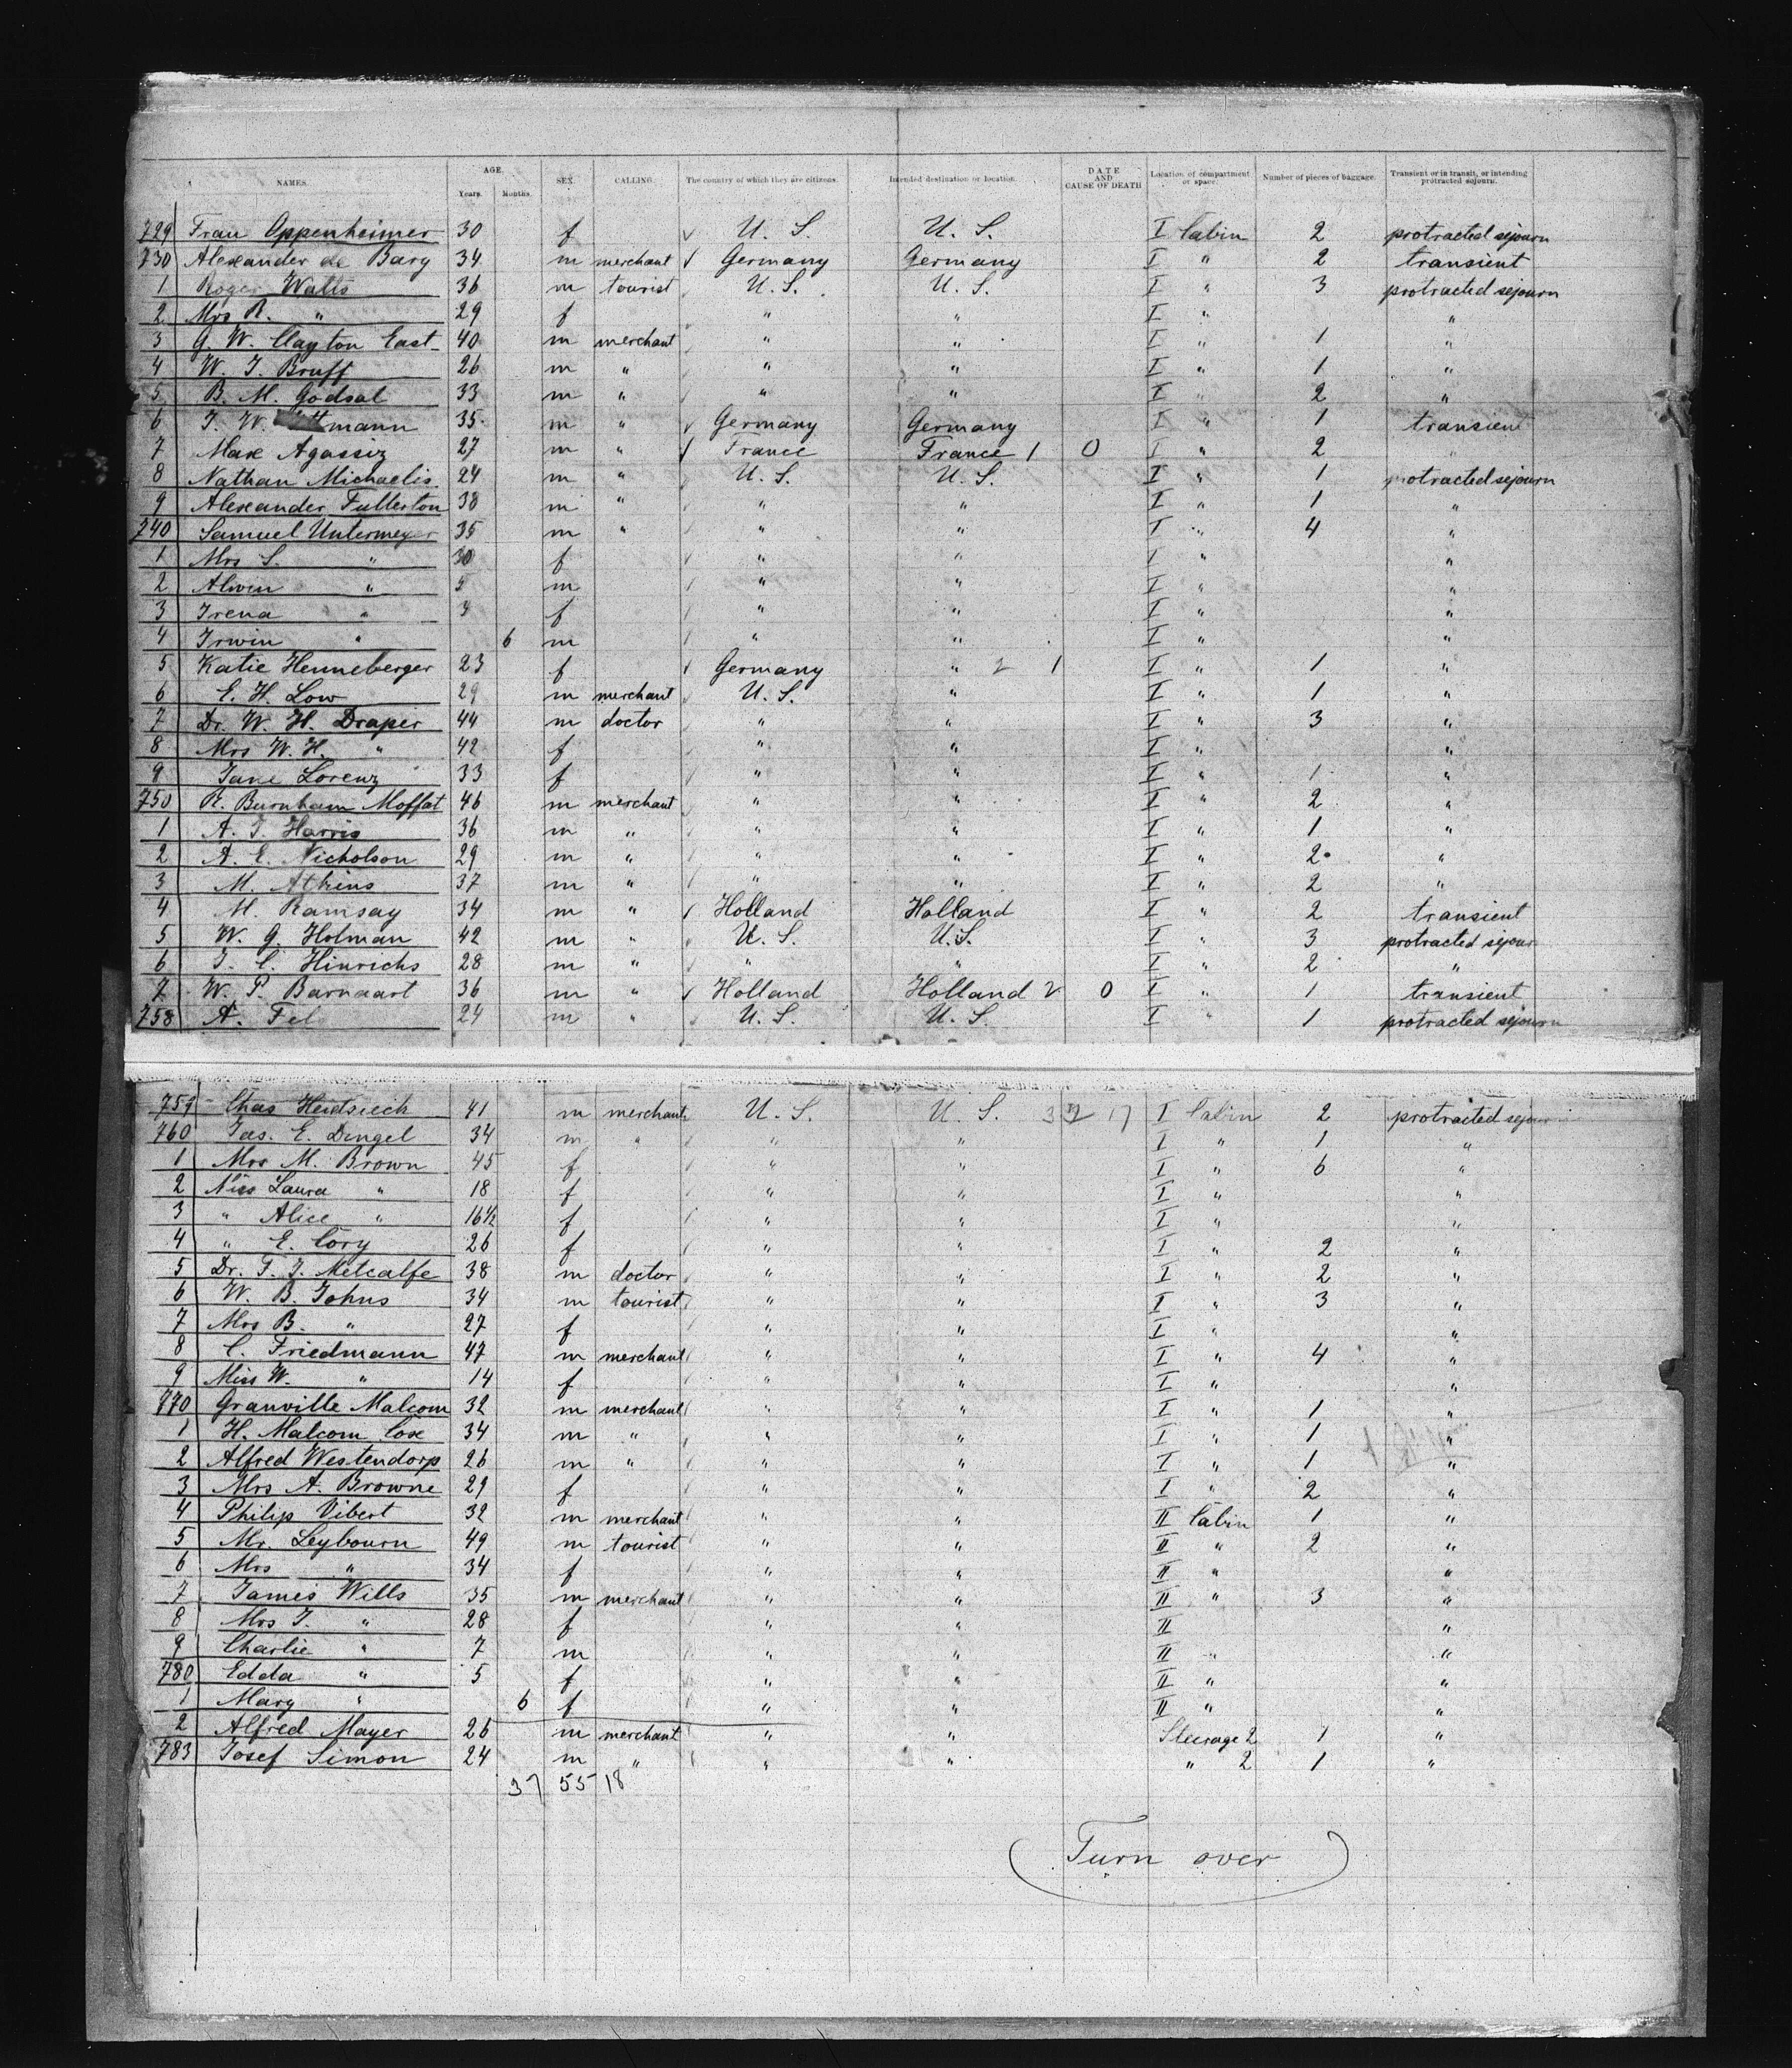 NAMES. AGE. Years. Months. SEX. CALLING. The country of which they are citizens. Intended destination or location. DATE AND CAUSE OF DEATH Location of compartment or space. Number of pieces of baggage. Transient or in transit, or intending protracted sejourn.
729 Frau Oppenheimer 30 f U. S. U. S. I Cabin 2 protracted sejourn
730 Alexander de Bary 34 m merchant Germany Germany I " 2 transient
1 Roger Watts 36 m tourist U. S. U. S. I " 3 protracted sejourn
2 Mrs R. " 29 f " " I " "
3 G. W. Clayton East 40 m merchant " " I " 1 "
4 W. J. Bruff 26 m " " " I " 1 "
5 B. M. Godsal 33 m " " " I " 2 "
6 J. W. mann 35 m " Germany Germany I " 1 transient
7 Max Agassiz 27 m " France France 1 0 I " 2 "
8 Nathan Michaelis 24 m " U. S. U. S. I " 1 protracted sejourn
9 Alexander Fullerton 38 m " " " I " 1 "
740 Samuel Untermeyer 35 m " " " I " 4 "
1 Mrs S. " 30 f " " I " "
2 Alwin " 5 m " " I " "
3 Irena " 3 f " " I " "
4 Irwin " 6 m " " I " "
5 Katie Henneberger 23 f Germany " 2 1 I " 1 "
6 E. H. Low 29 m merchant U. S. " I " 1 "
7 Dr. W. H. Draper 44 m doctor " " I " 3 "
8 Mrs W. H. " 42 f " " I " "
9 Jane Lorenz 33 f " " I " 1 "
750 R. Burnham Moffat 46 m merchant " " I " 2 "
1 A. J. Harris 36 m " " " I " 1 "
2 A. E. Nicholson 29 m " " " I " 2 "
3 M. Atkins 37 m " " " I " 2 "
4 M. Ramsay 34 m " Holland Holland I " 2 transient
5 W. G. Holman 42 m " U. S. U. S. I " 3 protracted sejour
6 J. C. Hinrichs 28 m " " " I " 2 "
7 W. P. Barnaart 36 m " Holland Holland 2 0 I " 1 transient
758 A. Fel 24 m " U. S. U. S. I " 1 protracted sejourn
759 Chas Heidsieck 41 m merchant U. S. U. S. 17 I Cabin 2 protracted sejour
760 Jas. E. Dingel 34 m " " " I " 1 "
1 Mrs M. Brown 45 f " " I " 6 "
2 Miss Laura " 18 f " " I " "
3 " Alice " 16½ f " " I " "
4 " E. Cory 26 f " " I " 2 "
5 Dr. F. J. Metcalfe 38 m doctor " " I " 2 "
6 W. B. Johns 34 m tourist " " I " 3 "
7 Mrs B. " 27 f " " I " "
8 C. Friedmann 47 m merchant " " I " 4 "
9 Miss W. " 14 f " " I " "
770 Granville Malcom 32 m merchant " " I " 1 "
1 H. Malcom Cox 34 m " " " I " 1 "
2 Alfred Westendorp 26 m " " " I " 1 "
3 Mrs A. Browne 29 f " " I " 2 "
4 Philip Vibert 32 m merchant " " II Cabin 1 "
5 Mr. Leybourn 49 m tourist " " II " 2 "
6 Mrs " 34 f " " II " "
7 James Wills 35 m merchant " " II " 3 "
8 Mrs J. " 28 f " " II "
9 Charlie " 7 m " " II " "
780 Edda " 5 f " " II " "
1 Mary " 6 f " " II " "
2 Alfred Mayer 26 m merchant " " Steerage 2 1 "
783 Josef Simon 24 m " " " " 2 1 "
37 55 18
Turn over